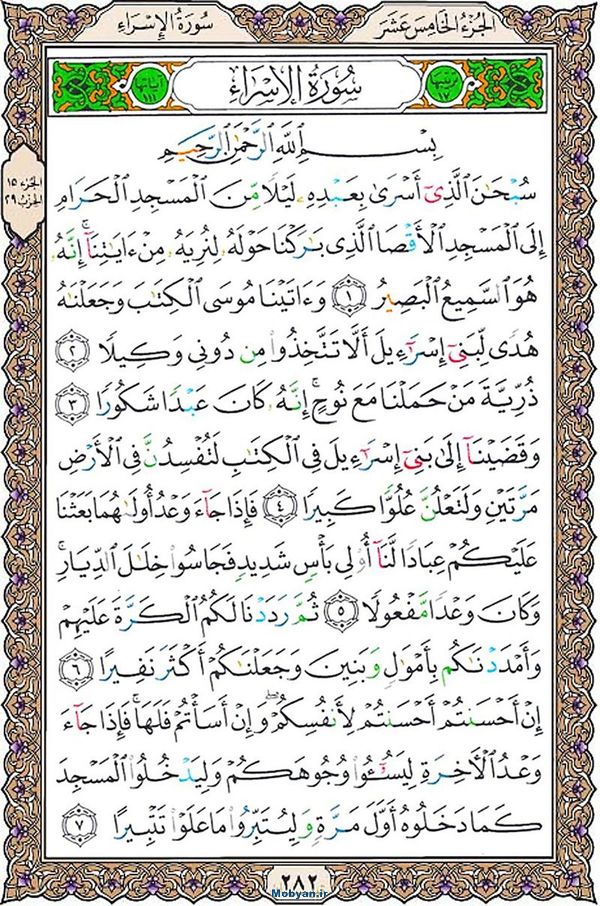 سُورَةُ الإِسْرَاءِ
الجُزْءُ الخَامِسَ عَشَرَ
سُورَةُ الإِسْرَاءِ
بِسْمِ ٱللَّهِ ٱلرَّحْمَٰنِ ٱلرَّحِيمِ
الجزء ١٥
الحزب ٢٩
سُبْحَٰنَ ٱلَّذِىٓ أَسْرَىٰ بِعَبْدِهِۦ لَيْلًا مِّنَ ٱلْمَسْجِدِ ٱلْحَرَامِ
إِلَى ٱلْمَسْجِدِ ٱلْأَقْصَا ٱلَّذِى بَٰرَكْنَا حَوْلَهُۥ لِنُرِيَهُۥ مِنْ ءَايَٰتِنَآ ۚ إِنَّهُۥ
هُوَ ٱلسَّمِيعُ ٱلْبَصِيرُ ١ وَءَاتَيْنَا مُوسَى ٱلْكِتَٰبَ وَجَعَلْنَٰهُ
هُدًى لِّبَنِىٓ إِسْرَٰٓءِيلَ أَلَّا تَتَّخِذُوا۟ مِن دُونِى وَكِيلًا ٢
ذُرِّيَّةَ مَنْ حَمَلْنَا مَعَ نُوحٍ ۚ إِنَّهُۥ كَانَ عَبْدًا شَكُورًا ٣
وَقَضَيْنَآ إِلَىٰ بَنِىٓ إِسْرَٰٓءِيلَ فِى ٱلْكِتَٰبِ لَتُفْسِدُنَّ فِى ٱلْأَرْضِ
مَرَّتَيْنِ وَلَتَعْلُنَّ عُلُوًّا كَبِيرًا ٤ فَإِذَا جَآءَ وَعْدُ أُولَىٰهُمَا بَعَثْنَا
عَلَيْكُمْ عِبَادًا لَّنَآ أُو۟لِى بَأْسٍ شَدِيدٍ فَجَاسُوا۟ خِلَٰلَ ٱلدِّيَارِ ۚ
وَكَانَ وَعْدًا مَّفْعُولًا ٥ ثُمَّ رَدَدْنَا لَكُمُ ٱلْكَرَّةَ عَلَيْهِمْ
وَأَمْدَدْنَٰكُم بِأَمْوَٰلٍ وَبَنِينَ وَجَعَلْنَٰكُمْ أَكْثَرَ نَفِيرًا ٦
إِنْ أَحْسَنتُمْ أَحْسَنتُمْ لِأَنفُسِكُمْ ۖ وَإِنْ أَسَأْتُمْ فَلَهَا ۚ فَإِذَا جَآءَ
وَعْدُ ٱلْءَاخِرَةِ لِيَسُۥٓـُٔوا۟ وُجُوهَكُمْ وَلِيَدْخُلُوا۟ ٱلْمَسْجِدَ
كَمَا دَخَلُوهُ أَوَّلَ مَرَّةٍ وَلِيُتَبِّرُوا۟ مَا عَلَوْا۟ تَتْبِيرًا ٧
٢٨٢
Mobyan.ir